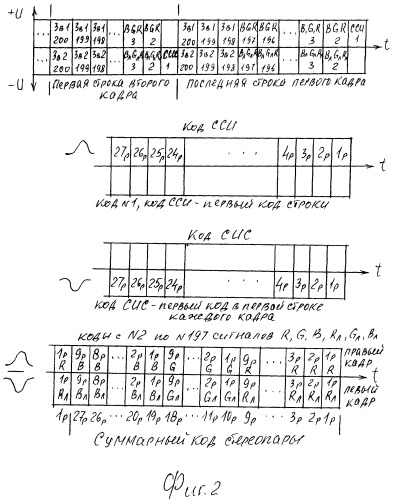 +U
... Зв1 Зв1 Зв1 ... BGR BGR Зв1 Зв1 Зв1 BGR BGR ... B,G,R BGR ССИ t
200 199 198 3 2 200 199 198 197 196 3 2 1
... Зв2 Зв2 Зв2 ... ССИ Зв2 Зв2 Зв2 ...
200 199 198 3 2 1 200 199 198 197 196 3 2
-U
Первая строка второго кадра
Последняя строка первого кадра
Код ССИ
27р 26р 25р 24р . . . 4р 3р 2р 1р t
Код №1, код ССИ - первый код строки
Код СИС
t
27р 26р 25р 24р . . . 4р 3р 2р 1р
Код СИС - первый код в первой строке
каждого кадра
Коды с №2 по №197 сигналов R, G, B, Rл, Gл, Bл
1р 9р 8р ... 2р 1р 9р ... 2р 1р 9р ... 3р 2р 1р правый
R B B B B G G G R R R R кадр
t
1р 9р 8р ... 2р 1р 9р ... 2р 1р 9р ... 3р 2р 1р левый
Rл Bл Bл Bл Bл Gл Gл Gл Rл Rл Rл Rл кадр
1р 27р 26р ... 20р 19р 18р ... 11р 10р 9р ... 3р 2р 1р
Суммарный код стереопары
Фиг.2